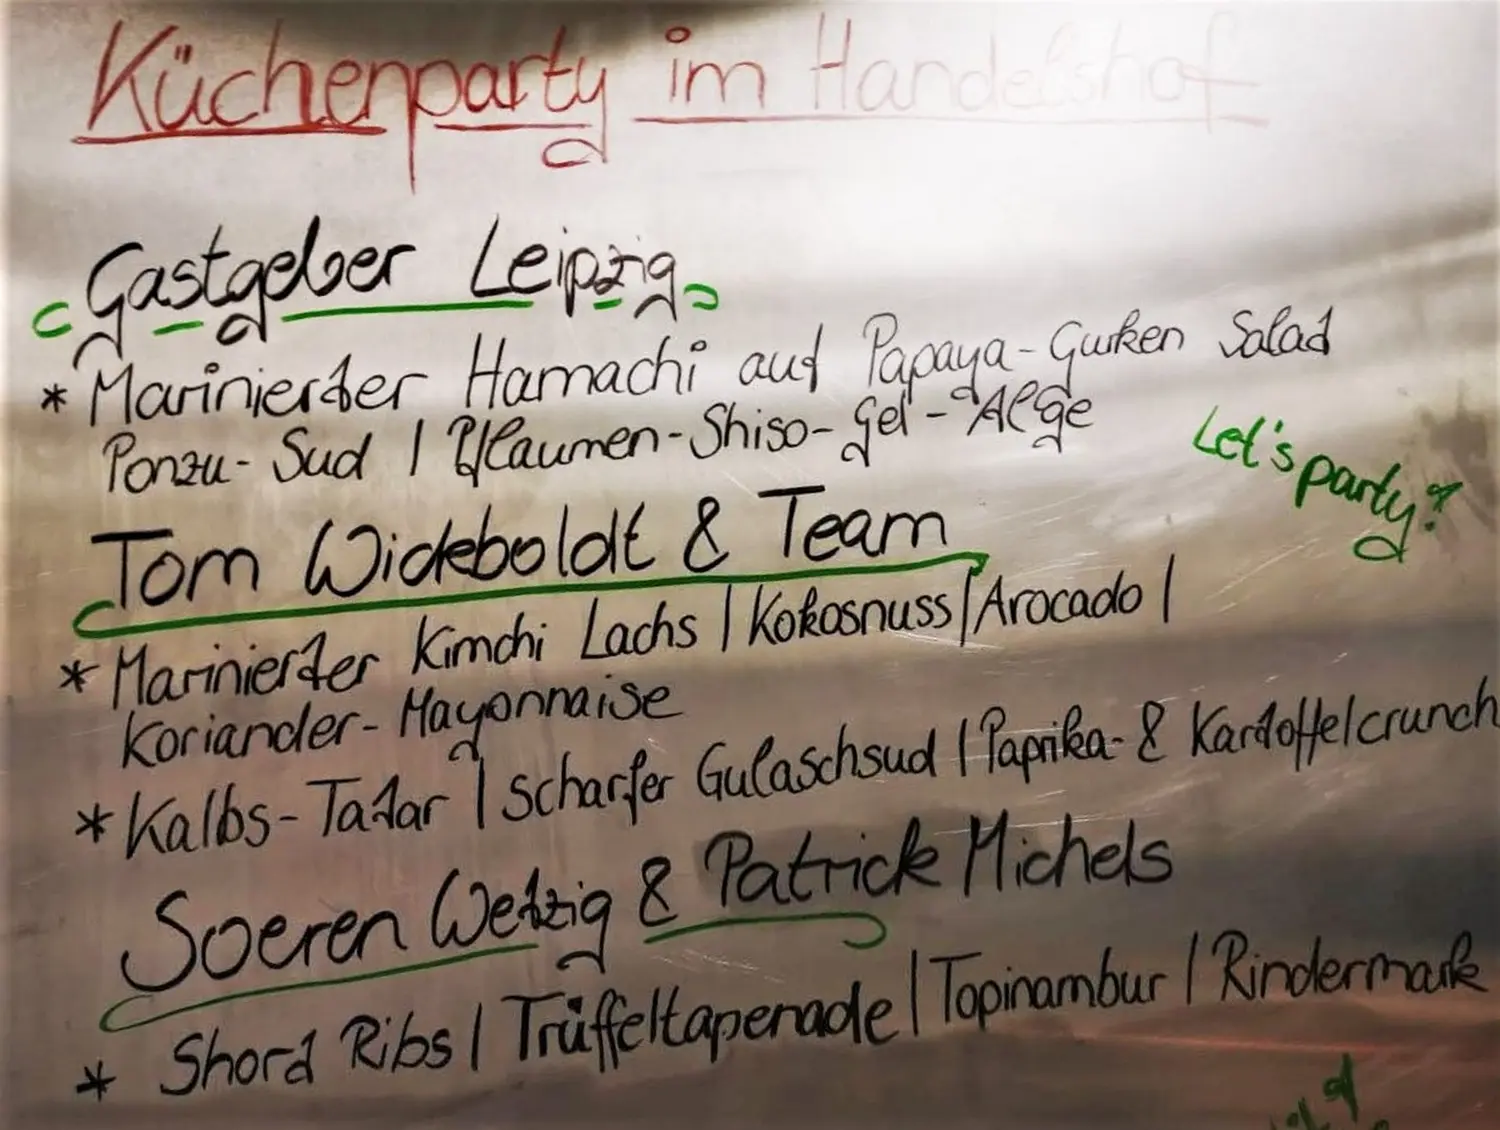 Küchenparty im Handelshof
Gastgeber Leipzig
* Marinierter Hamachi auf Papaya-Gurken Salad
Ponzu-Sud | Pflaumen-Shiso-Gel-Alge
Let's party!
Tom Wickeboldt & Team
* Marinierter Kimchi Lachs | Kokosnuss | Avocado |
Koriander-Mayonnaise
* Kalbs-Tatar | scharfer Gulaschsud | Paprika- & Kartoffelcrunch
Soeren Wetzig & Patrick Michels
* Short Ribs | Trüffeltapenade | Topinambur | Rindermark